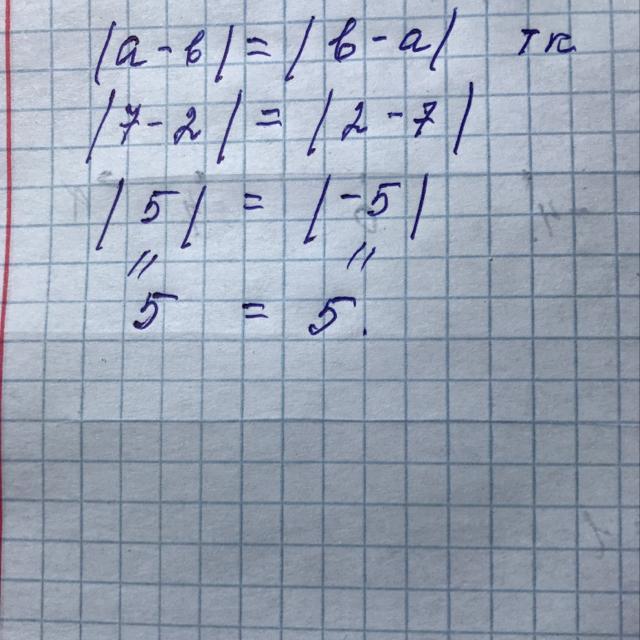 |a - в| = | в - a| тк
|7 - 2| = |2 - 7|
|5| = |-5|
" "
5 = 5.